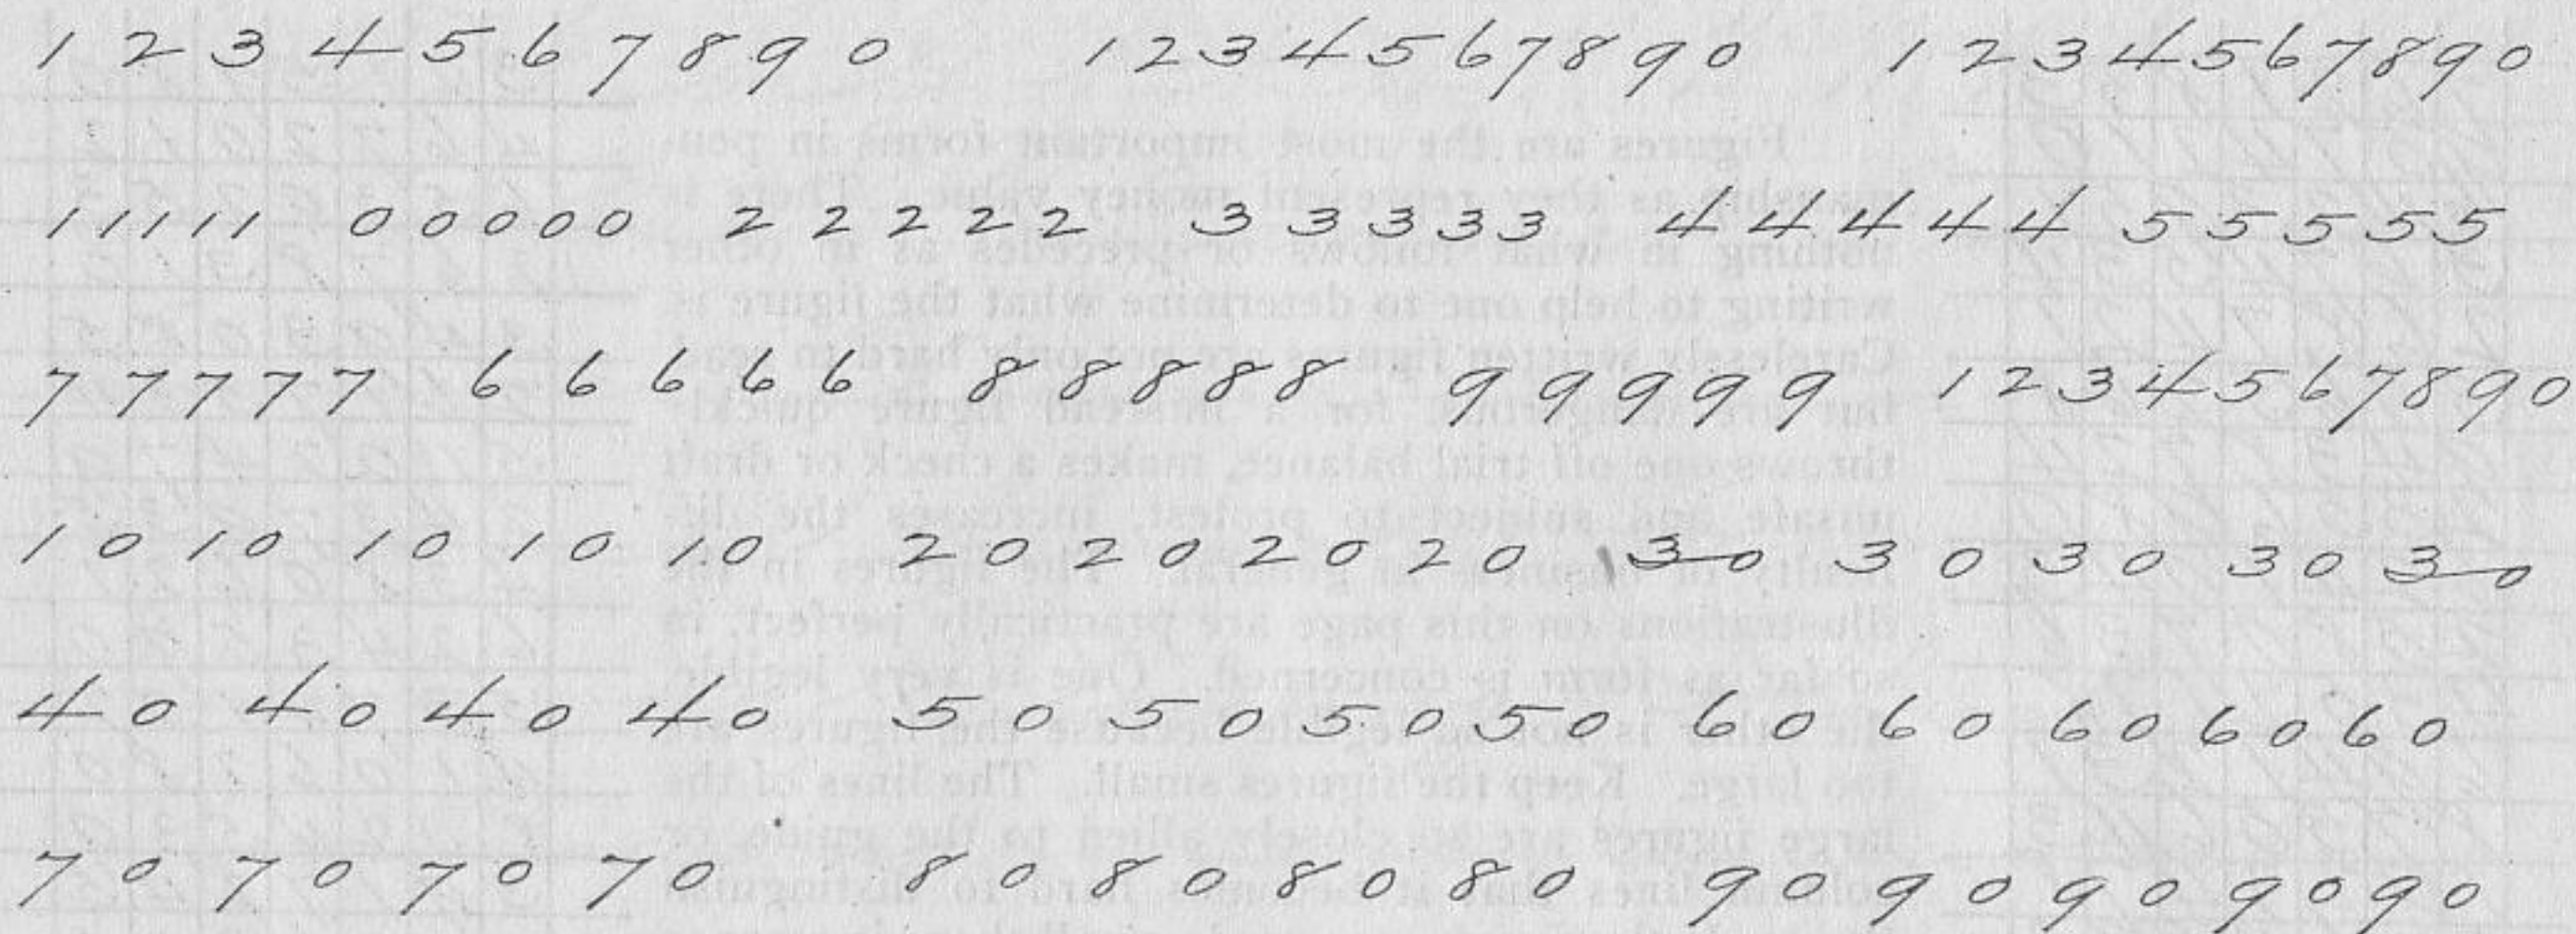 1 2 3 4 5 6 7 8 9 0 1 2 3 4 5 6 7 8 9 0 1 2 3 4 5 6 7 8 9 0
1 1 1 1 1 0 0 0 0 0 2 2 2 2 2 3 3 3 3 3 4 4 4 4 4 5 5 5 5 5
7 7 7 7 7 6 6 6 6 6 8 8 8 8 8 9 9 9 9 9 1 2 3 4 5 6 7 8 9 0
1 0 1 0 1 0 1 0 1 0 2 0 2 0 2 0 2 0 3 0 3 0 3 0 3 0 3 0
4 0 4 0 4 0 4 0 5 0 5 0 5 0 5 0 6 0 6 0 6 0 6 0 6 0
7 0 7 0 7 0 7 0 8 0 8 0 8 0 8 0 9 0 9 0 9 0 9 0 9 0